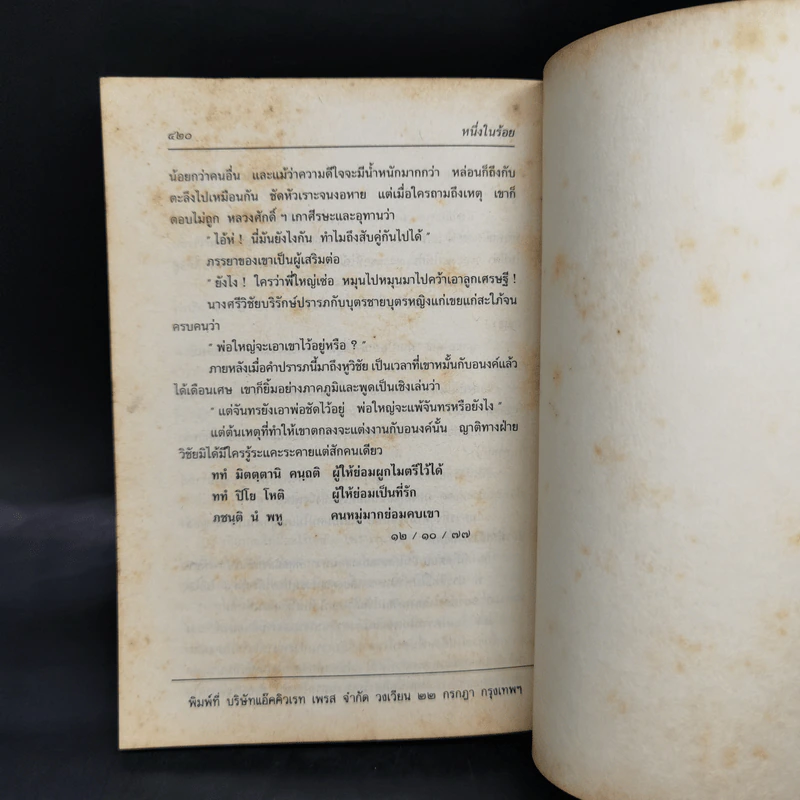 ๔๒๐ หนึ่งในร้อย
น้อยกว่าคนอื่น และแม้ว่าความดีใจจะมีน้ำหนักมากกว่า หล่อนก็ถึงกับ
ตะลึงไปเหมือนกัน ชัดหัวเราะจนงอหาย แต่เมื่อใครถามถึงเหตุ เขาก็
ตอบไม่ถูก หลวงศักดิ์ ฯ เกาศีรษะและอุทานว่า
" ไฮ้ห่ ! นี่มันยังไงกัน ทำไมถึงสับคู่กันไปได้ "
ภรรยาของเขาเป็นผู้เสริมต่อ
" ยังไง ! ใครว่าพี่ใหญ่เซ่อ หมุนไปหมุนมาไปคว้าเอาลูกเศรษฐี !
นางศรีวิชัยบริรักษ์ปรารภกับบุตรชายบุตรหญิงแก่เขยแก่สะใภ้จน
ครบคนว่า
" พ่อใหญ่จะเอาเขาไว้อยู่หรือ ? "
ภายหลังเมื่อคำปรารภนี้มาถึงหูวิชัย เป็นเวลาที่เขาหมั้นกับอนงค์แล้ว
ได้เดือนเศษ เขาก็ยิ้มอย่างภาคภูมิและพูดเป็นเชิงเล่นว่า
" แต่จันทรยังเอาพ่อชัดไว้อยู่ พ่อใหญ่จะแพ้จันทรหรือยังไง "
แต่ต้นเหตุที่ทำให้เขาตกลงจะแต่งงานกับอนงค์นั้น ญาติทางฝ่าย
วิชัยมิได้มีใครรู้ระแคะระคายแต่สักคนเดียว
ททํ มิตตฺตานิ คนฺถติ ผู้ให้ย่อมผูกไมตรีไว้ได้
ททํ ปิโย โหติ ผู้ให้ย่อมเป็นที่รัก
ภชนฺติ นํ พหู คนหมู่มากย่อมคบเขา
๑๒ / ๑๐ / ๗๗
พิมพ์ที่ บริษัทแอ๊คคิวเรท เพรส จำกัด วงเวียน ๒๒ กรกฎา กรุงเทพฯ